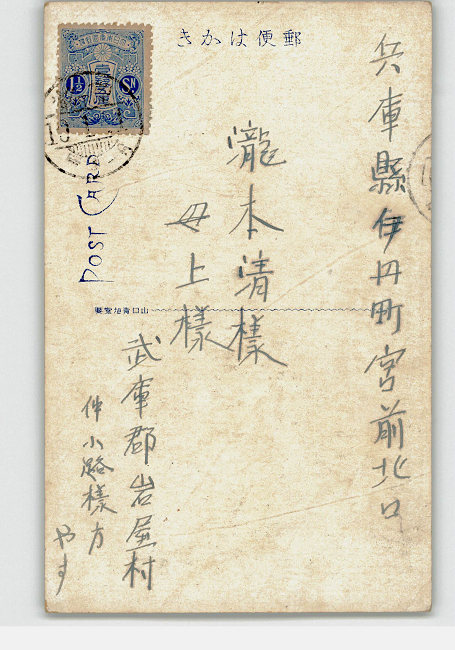 郵便はかき
兵庫縣伊丹町宮前北口
瀧本清様
母上様
武庫郡岩屋村
仲小路様方
やす
POST CARD
1½ Sn